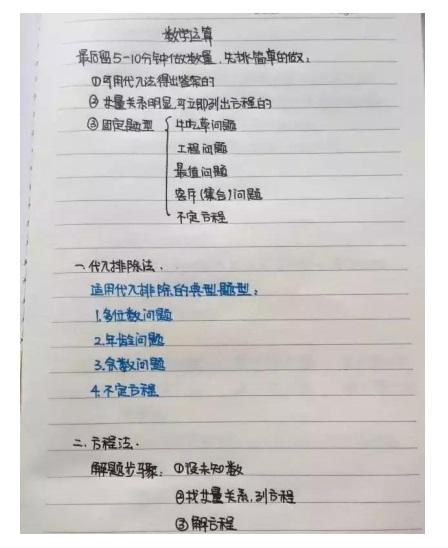 数学运算
最后留5-10分钟做数量,先挑简单的做:
①可用代入法得出答案的
②等量关系明显,可立即列出方程的
③固定题型 牛吃草问题
工程问题
最值问题
容斥(集合)问题
不定方程
一.代入排除法.
适用代入排除的典型题型:
1.多位数问题
2.年龄问题
3.余数问题
4.不定方程
二.方程法.
解题步骤: ①设未知数
②找等量关系,列方程
③解方程